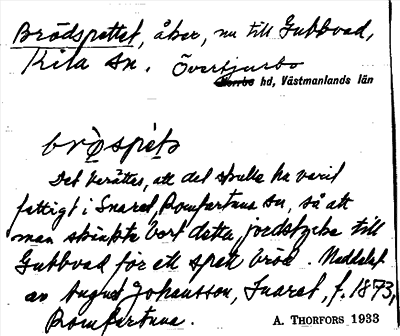 Brödspettet, åker, nu till Gubbvad,
Kila sn. Övertjurbo
Norrbo hd, Västmanlands län
brö̀spét
Det berättes, att det skulle ha varit
fattigt i Snarel, Romfartuna sn, så att
man skänkte bort detta jordstycke till
Gubbvad för ett spett bröd. Meddelat
av August Johansson, Snarel, f. 1873,
Romfartuna.
A. THORFORS 1933